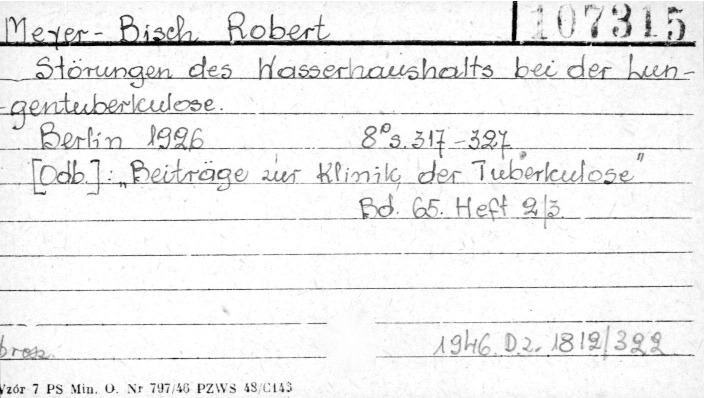 Meyer-Bisch Robert 107315
Störungen des Wasserhaushalts bei der Lun-
gentuberkulose.
Berlin 1926 8° s. 317-327
[Odb.]: „Beiträge zur Klinik der Tuberkulose”
Bd. 65. Heft 2/3.
brosz.
1946. D.z. 1812/322
Wzór 7 PS Min. O. Nr 797/46 PZWS 48/C143